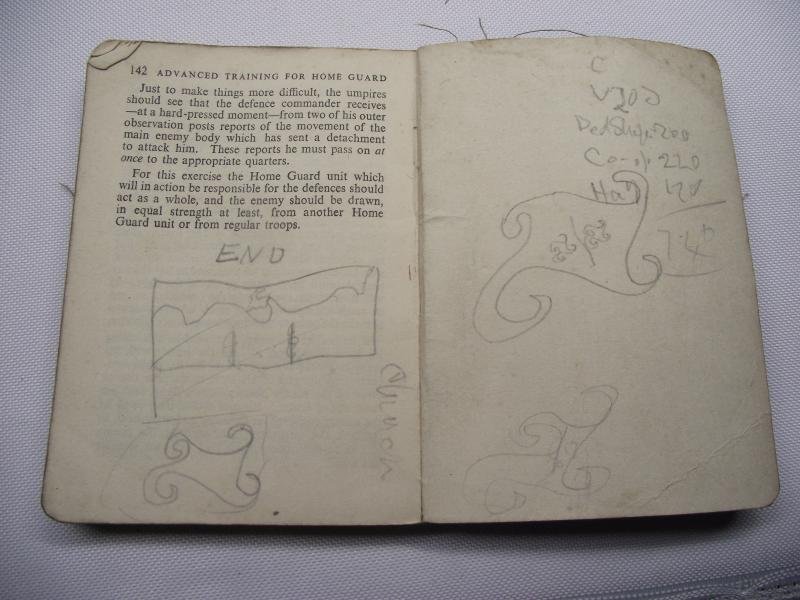 142 ADVANCED TRAINING FOR HOME GUARD
Just to make things more difficult, the umpires
should see that the defence commander receives
—at a hard-pressed moment—from two of his outer
observation posts reports of the movement of the
main enemy body which has sent a detachment
to attack him. These reports he must pass on at
once to the appropriate quarters.
For this exercise the Home Guard unit which
will in action be responsible for the defences should
act as a whole, and the enemy should be drawn,
in equal strength at least, from another Home
Guard unit or from regular troops.
END
C
200
220